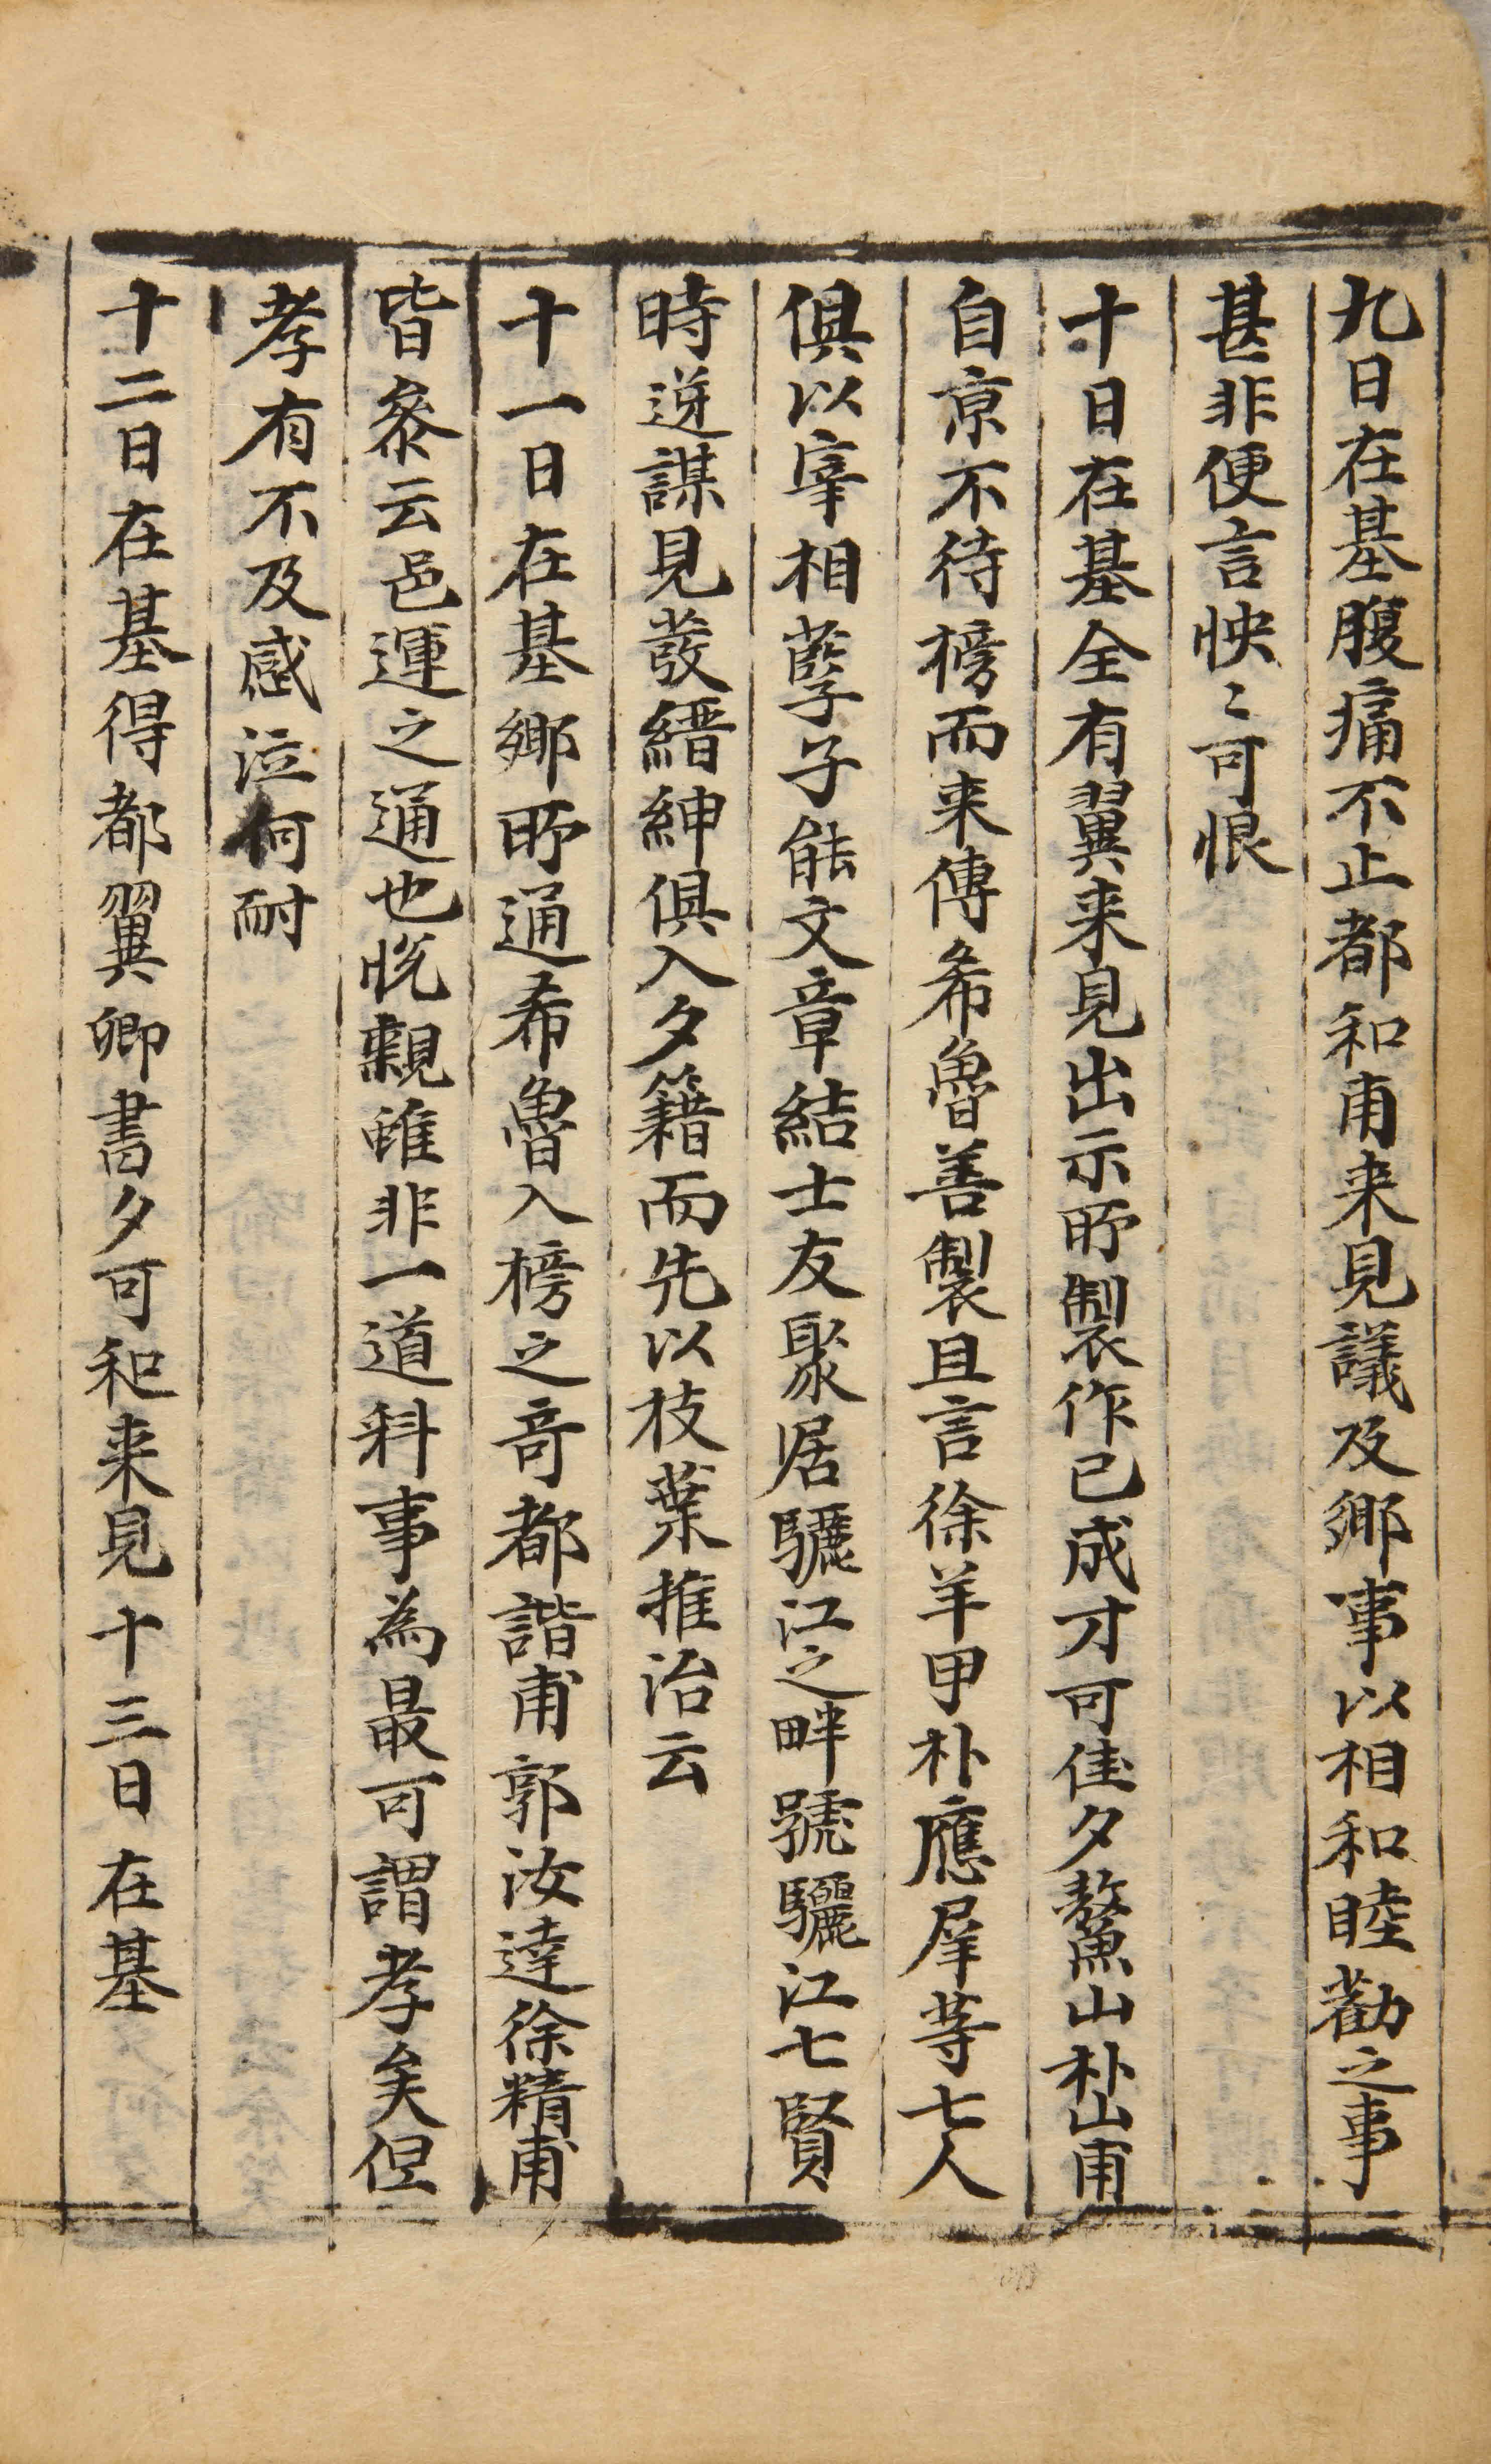 九日在基腹痛不止都和甫来見議及鄉事以相和睦勸之事
甚非便言怏〻可恨
十日在基全有翼来見出示所製作已成才可佳夕鰲山朴山甫
自京不待榜而来傳希魯善製且言徐羊甲朴應犀等七人
俱以宰相孽子能文章結士友聚居驪江之畔號驪江七賢
時逆謀見發縉紳俱入夕籍而先以枝葉推治云
十一日在基鄉所通希魯入榜之奇都諧甫郭汝達徐精甫
皆參云邑運之通也悅親雖非一道科事為最可謂孝矣但
孝有不及感泣何耐
十二日在基得都翼卿書夕可和来見十三日在基